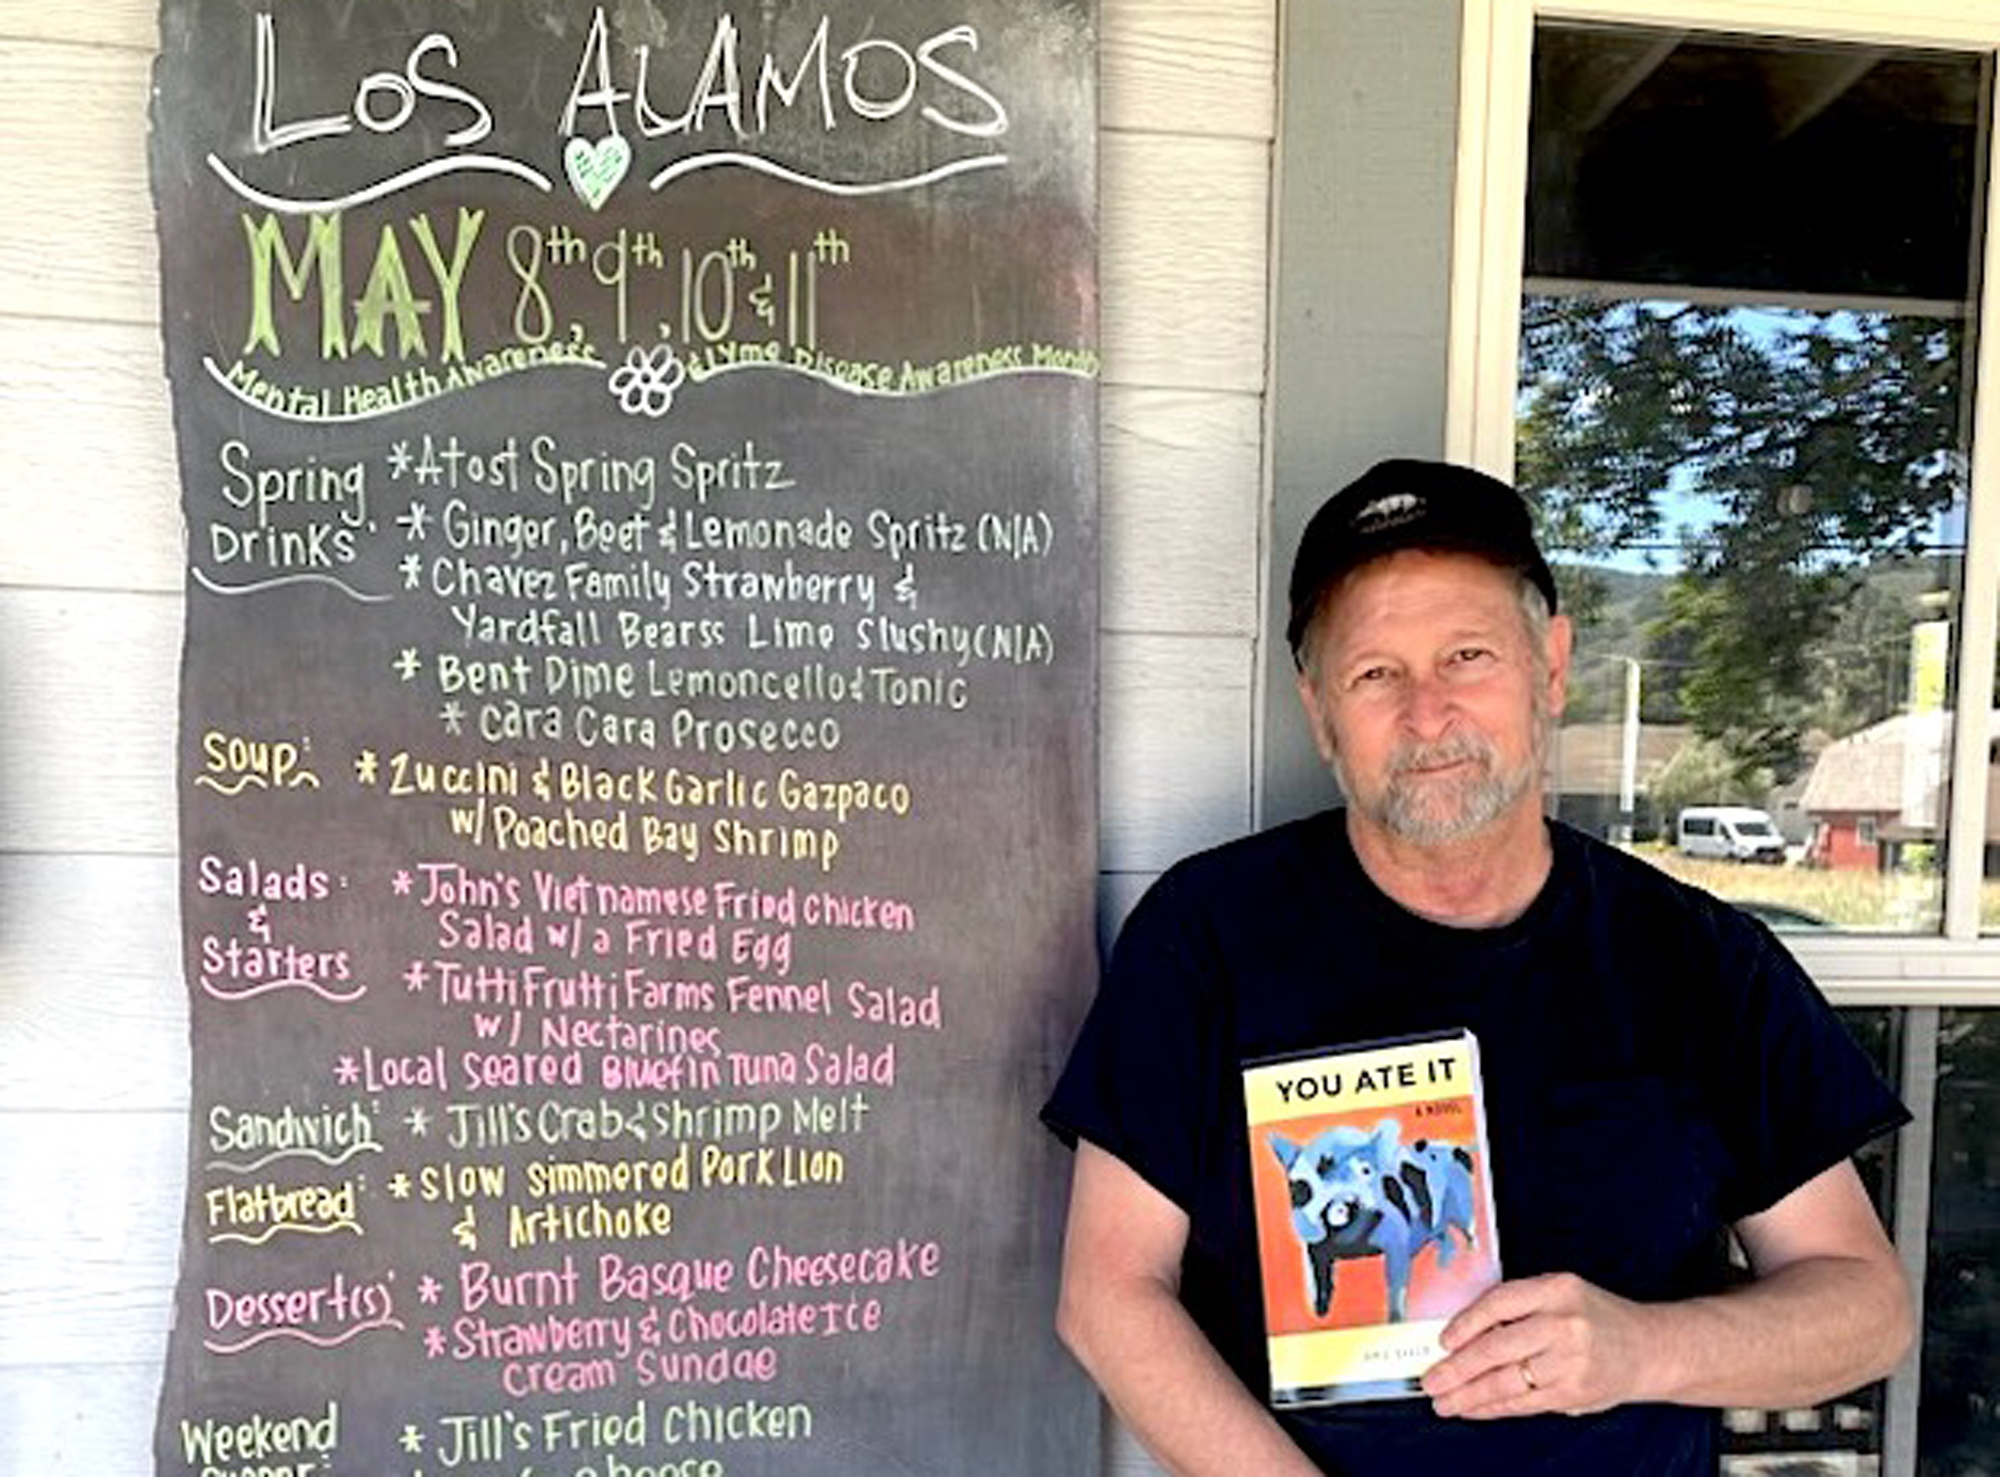 LOS ALAMOS
MAY 8th, 9th, 10th & 11th
Mental Health Awareness & Lyme Disease Awareness Month
Spring Drinks:
*Atost Spring Spritz
* Ginger, Beet & Lemonade Spritz (N/A)
* Chavez Family Strawberry &
Yardfall Bearss Lime Slushy (N/A)
* Bent Dime Lemoncello & Tonic
* Cara Cara Prosecco
Soup:
* Zuccini & Black Garlic Gazpaco
w/ Poached Bay Shrimp
Salads & Starters:
* John's Vietnamese Fried Chicken
Salad w/ a Fried Egg
* Tutti Frutti Farms Fennel Salad
w/ Nectarines
*Local Seared Bluefin Tuna Salad
Sandwich: * Jill's Crab & Shrimp Melt
Flatbread: * Slow Simmered Pork Lion
& Artichoke
Dessert(s): * Burnt Basque Cheesecake
* Strawberry & Chocolate Ice
Cream Sundae
Weekend
* Jill's Fried Chicken
YOU ATE IT
A NOVEL